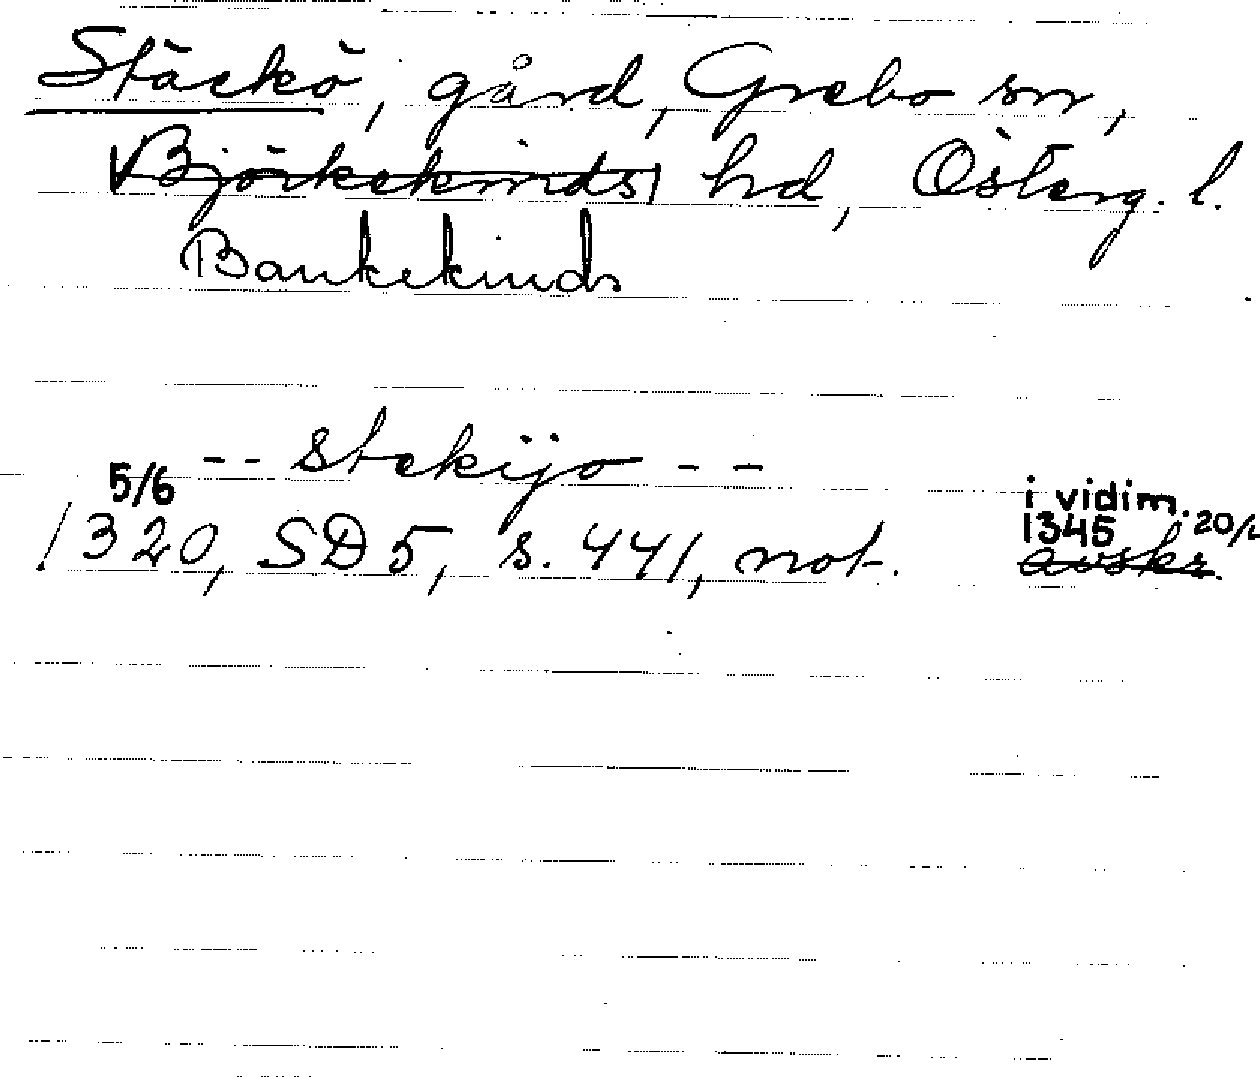 Stäckö, gård, Grebo sn,
Björkekinds hd, Österg. l.
Bankekinds
-- stekijo --
5/6 i vidim.
1320, SD5, s. 441, not. 1345 20/
avskr.